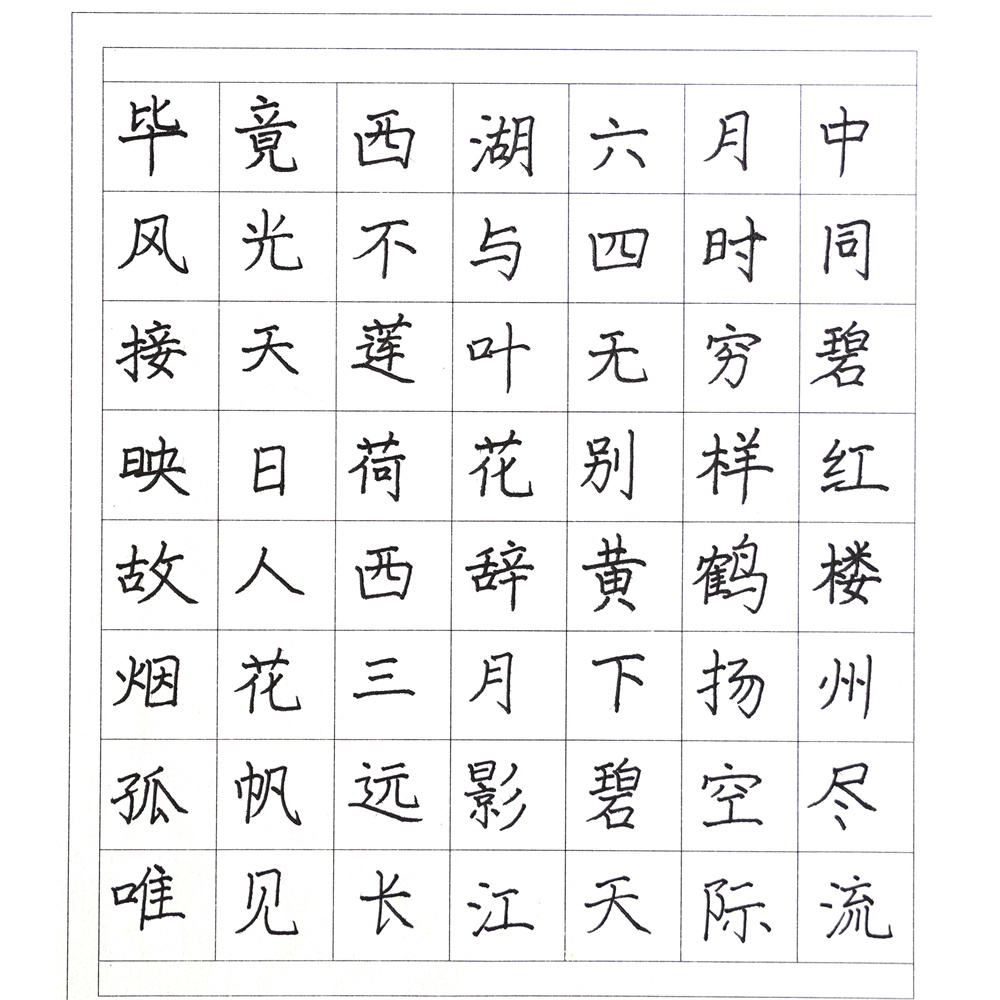 毕竟西湖六月中
风光不与四时同
接天莲叶无穷碧
映日荷花别样红
故人西辞黄鹤楼
烟花三月下扬州
孤帆远影碧空尽
唯见长江天际流